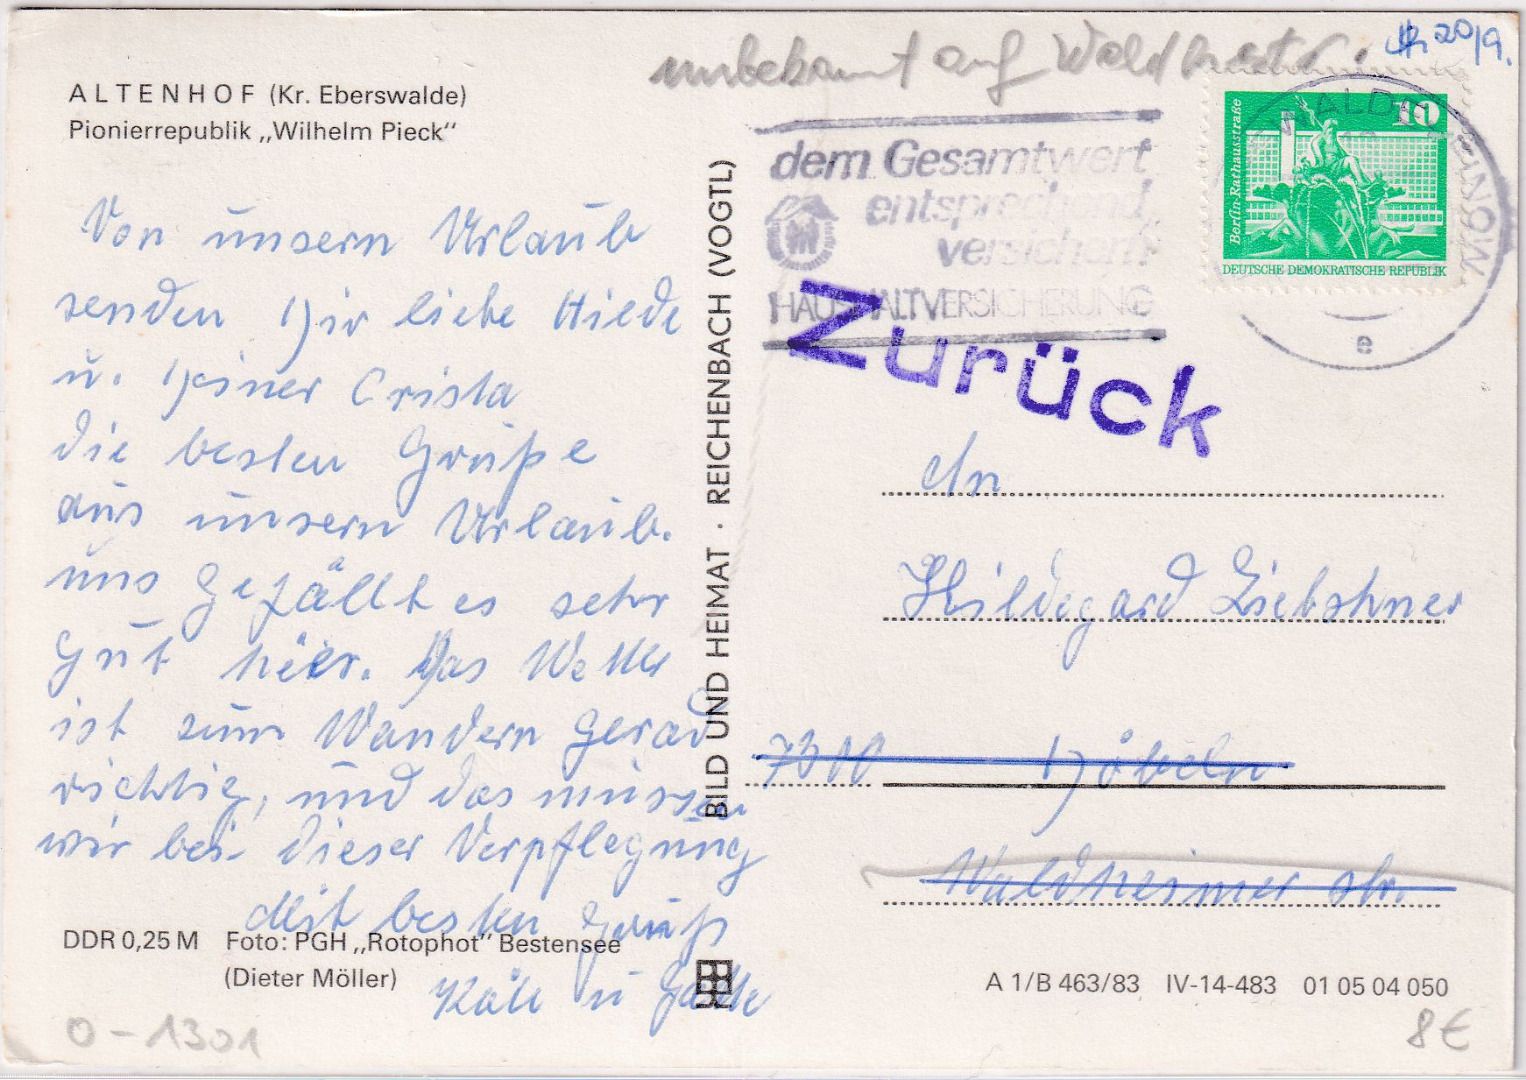 ALTENHOF (Kr. Eberswalde)
Pionierrepublik „Wilhelm Pieck“
Von unsern Urlaub
senden Dir liebe Hilde
u. Deiner Crista
die besten Grüße
aus unsern Urlaub.
uns Gefällt es sehr
Gut hier. Das Wetter
ist zum Wandern Gerad
richtig, und das müssen
wir bei dieser Verpflegung
Mit besten Gruß
Käte u
DDR 0,25 M Foto: PGH „Rotophot“ Bestensee
(Dieter Möller)
0-1301
BILD UND HEIMAT · REICHENBACH (VOGTL)
unbekannt auf
20/9.
dem Gesamtwert
entsprechend
versichert?
HAUSHALTVERSICHERUNG
Zurück
10
Berlin-Rathausstraße
DEUTSCHE DEMOKRATISCHE REPUBLIK
e
An
Hildegard Liebshner
7300 Döbeln
Waldheimer str.
A 1/B 463/83 IV-14-483 01 05 04 050
8€